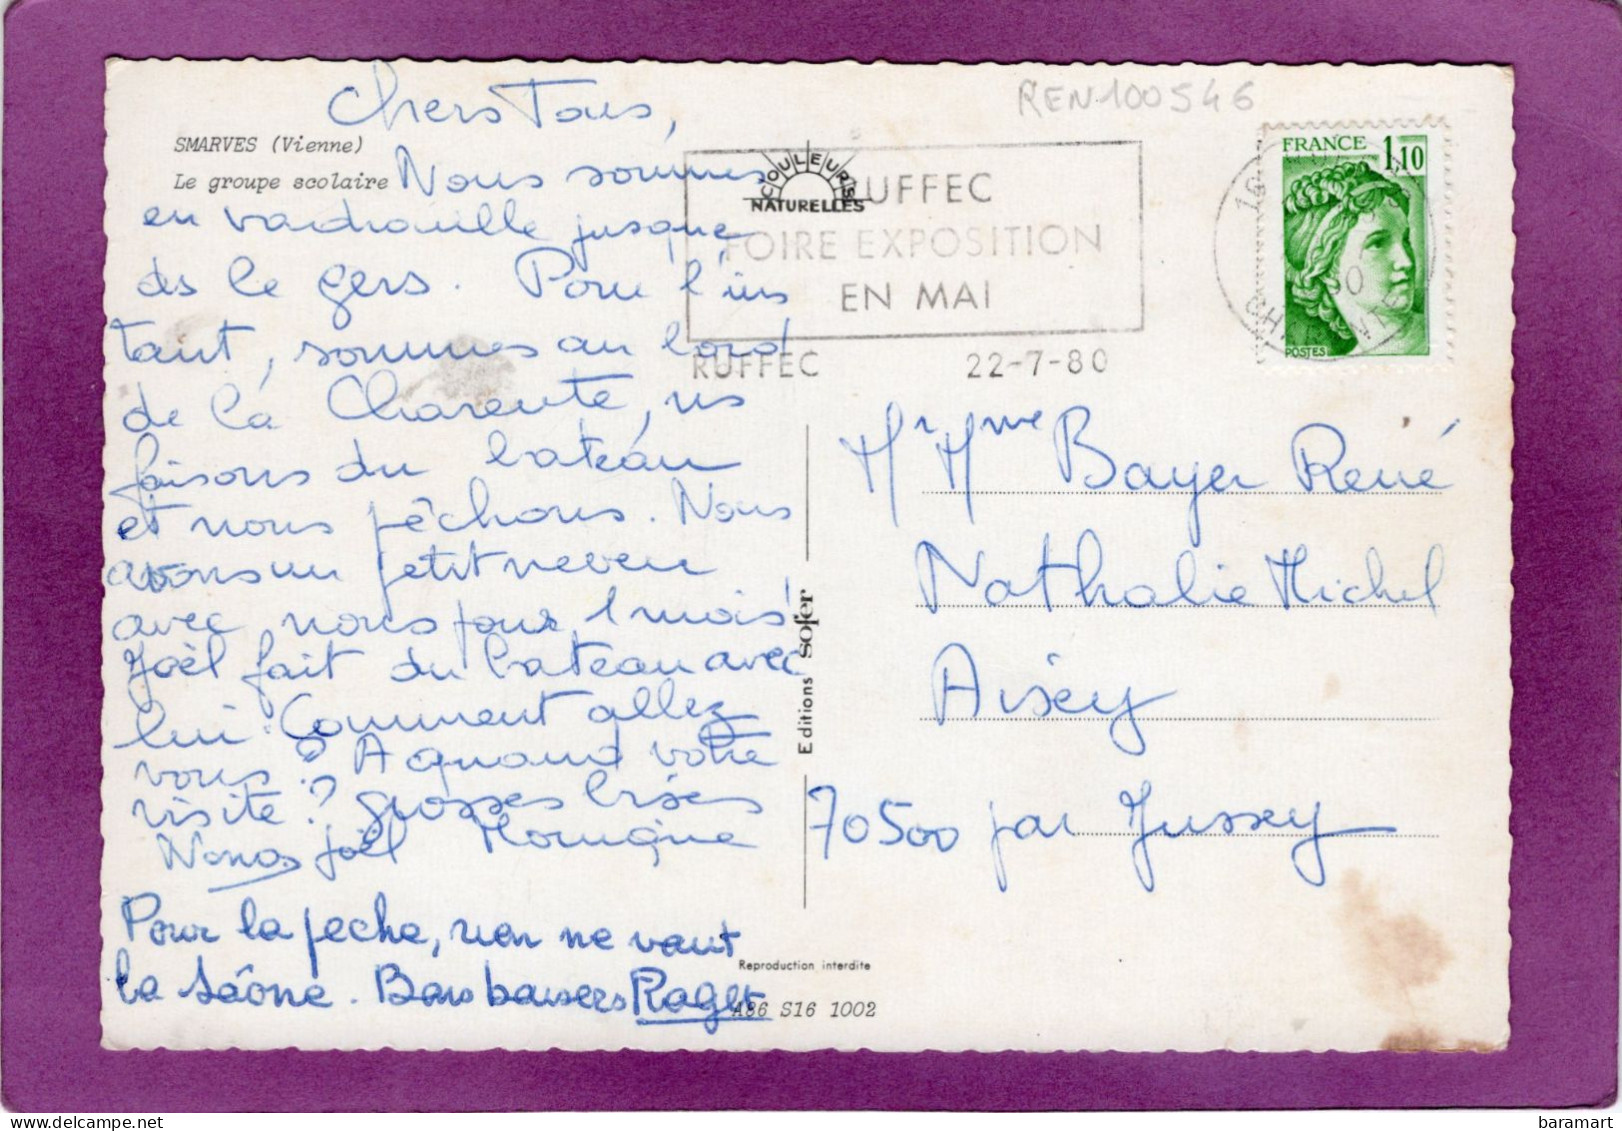 REN100546
SMARVES (Vienne)
Le groupe scolaire
Chers Tous,
Nous sommes
en vadrouille jusque
ds le gers. Pour l'ins
tant, sommes au bord
de la Charente, ns
faisons du bateau
et nous pêchons. Nous
avons un petit neveu
avec nous pour 1 mois
Joël fait du bateau avec
lui. Comment allez
vous? A quand votre
visite? grosses bises
Joël Monique
Pour la peche, rien ne vaut
la Saône. Bons baisers Roger
COULEURS
NATURELLES
RUFFEC
FOIRE EXPOSITION
EN MAI
RUFFEC 22-7-80
FRANCE 1,10
POSTES
Mr Mme Bayer René
Nathalie Michel
Aisey
70500 par Jussey
Editions sofer
Reproduction interdite
A86 S16 1002
baramart